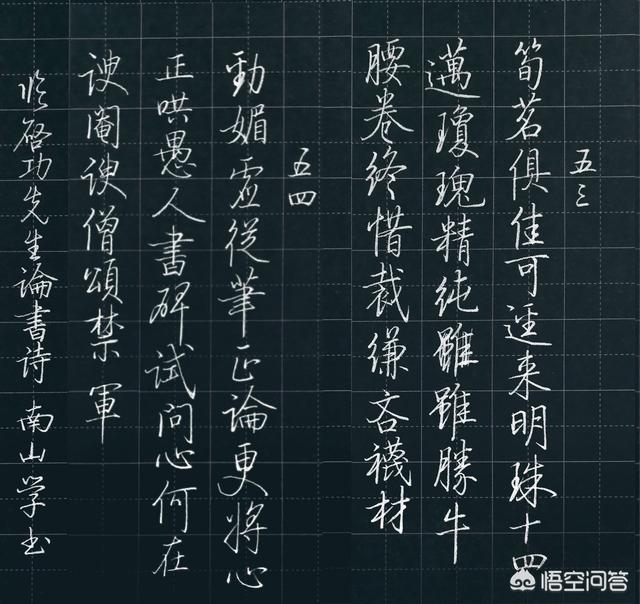 五三
筍茗俱佳可逕来明珠十四
邁瓊瑰精纯雖雖勝牛
腰卷终惜裁缣吝襪材
五四
勁媚虛從筆正論更將心
正哄愚人書碑试问心何在
谀阉谀僧頌禁軍
临啓功先生論書诗 南山学书
悟空问答